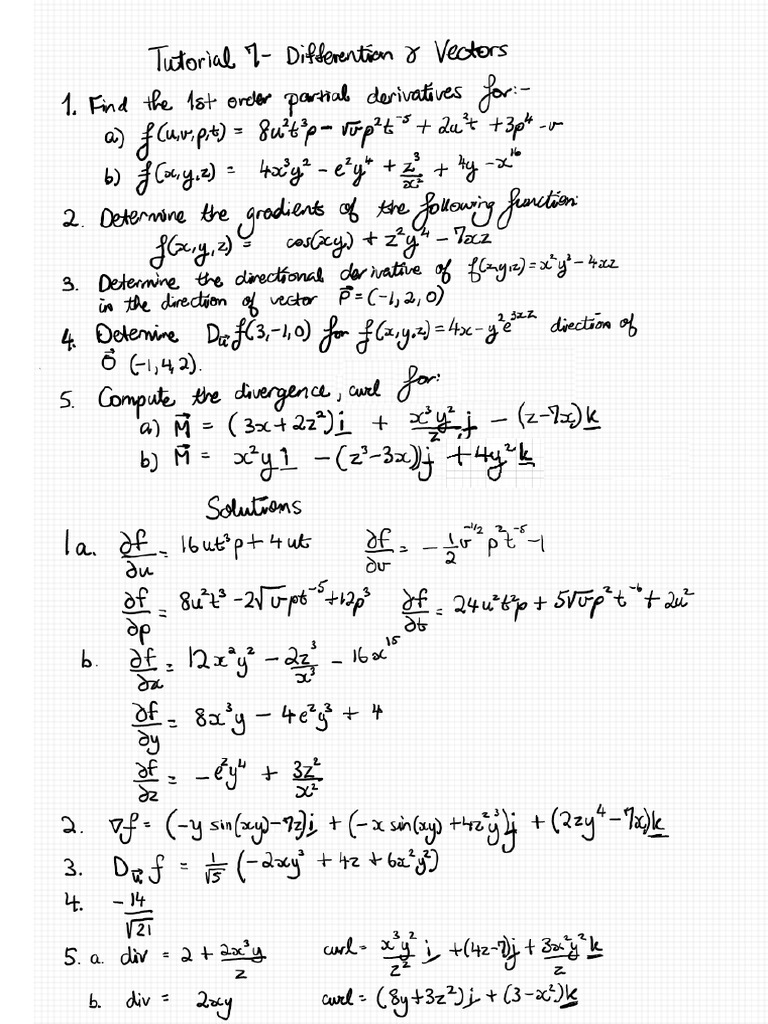 Tutorial 7 - Differention & Vectors
1. Find the 1st order partial derivatives for:-
a) f(u,v,p,t) = 8u²t³p - √v p²t⁻⁵ + 2u²t + 3p⁴ - v
b) f(x,y,z) = 4x³y² - e^z y⁴ + z³/x² + 4y - x¹⁶
2. Determine the gradients of the following function:
f(x,y,z) = cos(xy) + z²y⁴ - 7xz
3. Determine the directional derivative of f(x,y,z) = x²y³ - 4xz
in the direction of vector p⃗ = (-1, 2, 0)
4. Determine D_u⃗ f(3,-1,0) for f(x,y,z) = 4x - y²e^(3xz) direction of
O⃗ (-1,4,2).
5. Compute the divergence, curl for:
a) M⃗ = (3x + 2z²)i + x³y²/z j - (z - 7x)k
b) M⃗ = x²y i - (z³ - 3x)j + 4y²k
Solutions
1a. ∂f/∂u = 16ut³p + 4ut ∂f/∂v = -1/2 v^(-1/2) p²t⁻⁵ - 1
∂f/∂p = 8u²t³ - 2√v pt⁻⁵ + 12p³ ∂f/∂t = 24u²t²p + 5√v p²t⁻⁶ + 2u²
b. ∂f/∂x = 12x²y² - 2z³/x³ - 16x¹⁵
∂f/∂y = 8x³y - 4e^z y³ + 4
∂f/∂z = -e^z y⁴ + 3z²/x²
2. ∇f = (-y sin(xy) - 7z)i + (-x sin(xy) + 4z²y³)j + (2zy⁴ - 7x)k
3. D_u⃗ f = 1/√5 (-2xy³ + 4z + 6x²y²)
4. -14/√21
5. a. div = 2 + 2x³y/z curl = x³y²/z² i + (4z - 7)j + 3x²y²/z k
b. div = 2xy curl = (8y + 3z²)i + (3 - x²)k